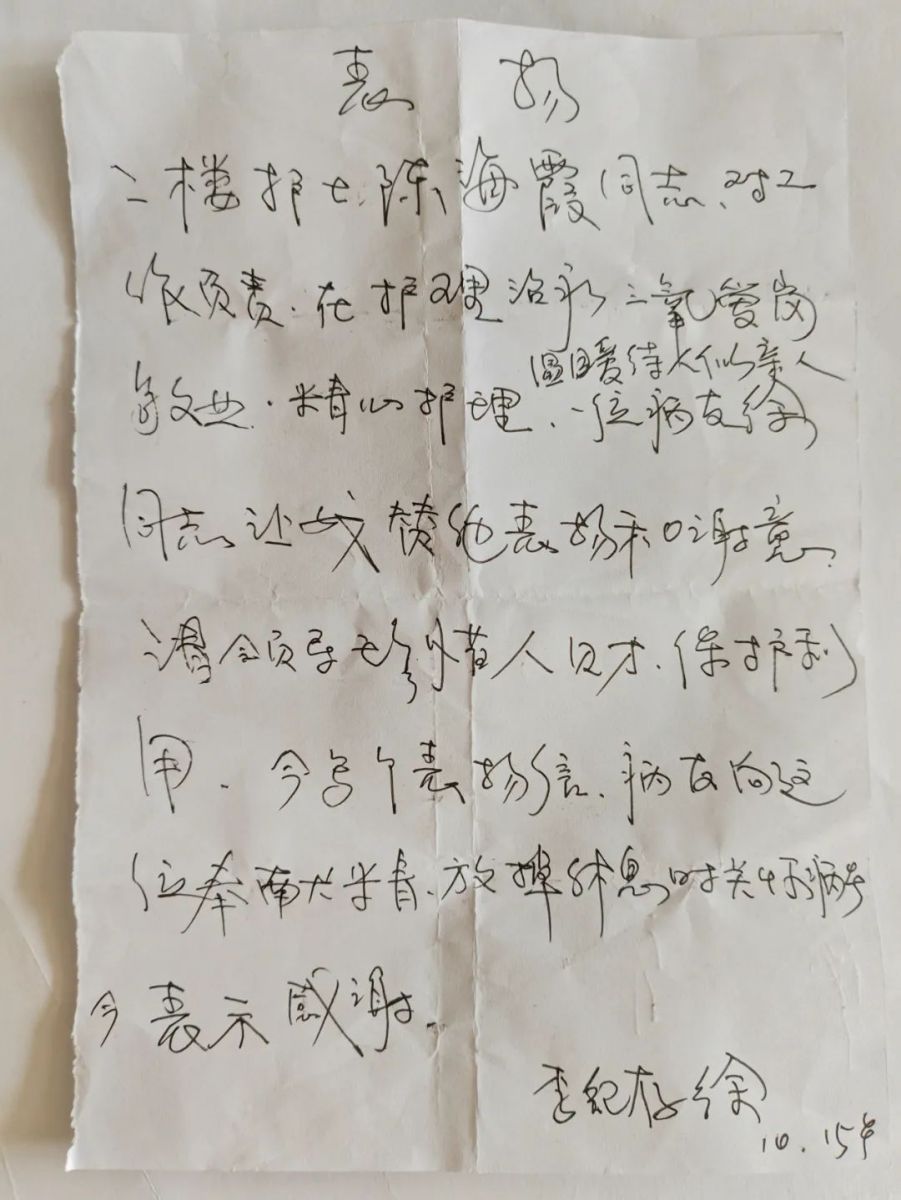 表扬
二楼护士陈海霞同志、对工
作负责.在护理治疗三氧爱岗
敬业.精心护理、一位病友徐
温暖待人似亲人
同志让我替他表扬和谢意
请领导珍惜人才、保护利
用.今写个表扬信、病友向这
位奉献精、放弃休息时关怀病号
今表示感谢.
李纪存徐
10.15号